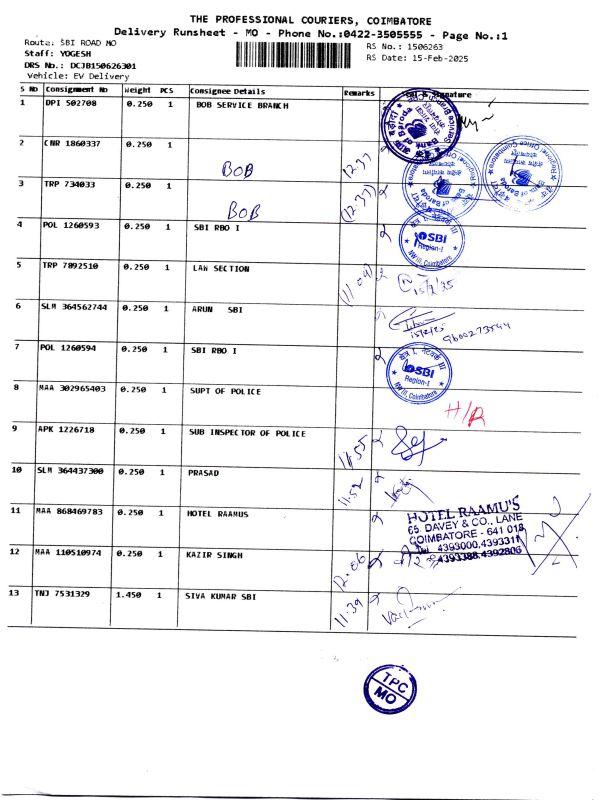 THE PROFESSIONAL COURIERS, COIMBATORE
Delivery Runsheet - MO - Phone No.:0422-3505555 - Page No.:1
Route: SBI ROAD MO
RS No.: 1506263
Staff: YOGESH
RS Date: 15-Feb-2025
DRS No.: DCJB150626301
Vehicle: EV Delivery
S No Consignment No Weight PCS Consignee Details Remarks Signature
1 DPI 502708 0.250 1 BOB SERVICE BRANCH
2 CNR 1860337 0.250 1 BOB 12.37
3 TRP 734033 0.250 1 BOB (12.37)
4 POL 1260593 0.250 1 SBI RBO I
SBI
Region-I
NW III, Coimbatore
5 TRP 7892510 0.250 1 LAW SECTION (11.09) 15/2/25
6 SLM 364562744 0.250 1 ARUN SBI 15/2/25 9600273544
7 POL 1260594 0.250 1 SBI RBO I
SBI
Region-I
NW III, Coimbatore
8 MAA 302965403 0.250 1 SUPT OF POLICE H/R
9 APK 1226718 0.250 1 SUB INSPECTOR OF POLICE 11.55
10 SLM 364437300 0.250 1 PRASAD 11.52
11 MAA 868469783 0.250 1 HOTEL RAAMUS
HOTEL RAAMU'S
65, DAVEY & CO., LANE
COIMBATORE - 641 018
Tel 4393000,4393311
4393388,4392806
12 MAA 110510974 0.250 1 KAZIR SINGH 12.06
13 TNJ 7531329 1.450 1 SIVA KUMAR SBI 11.39
TPC
MO